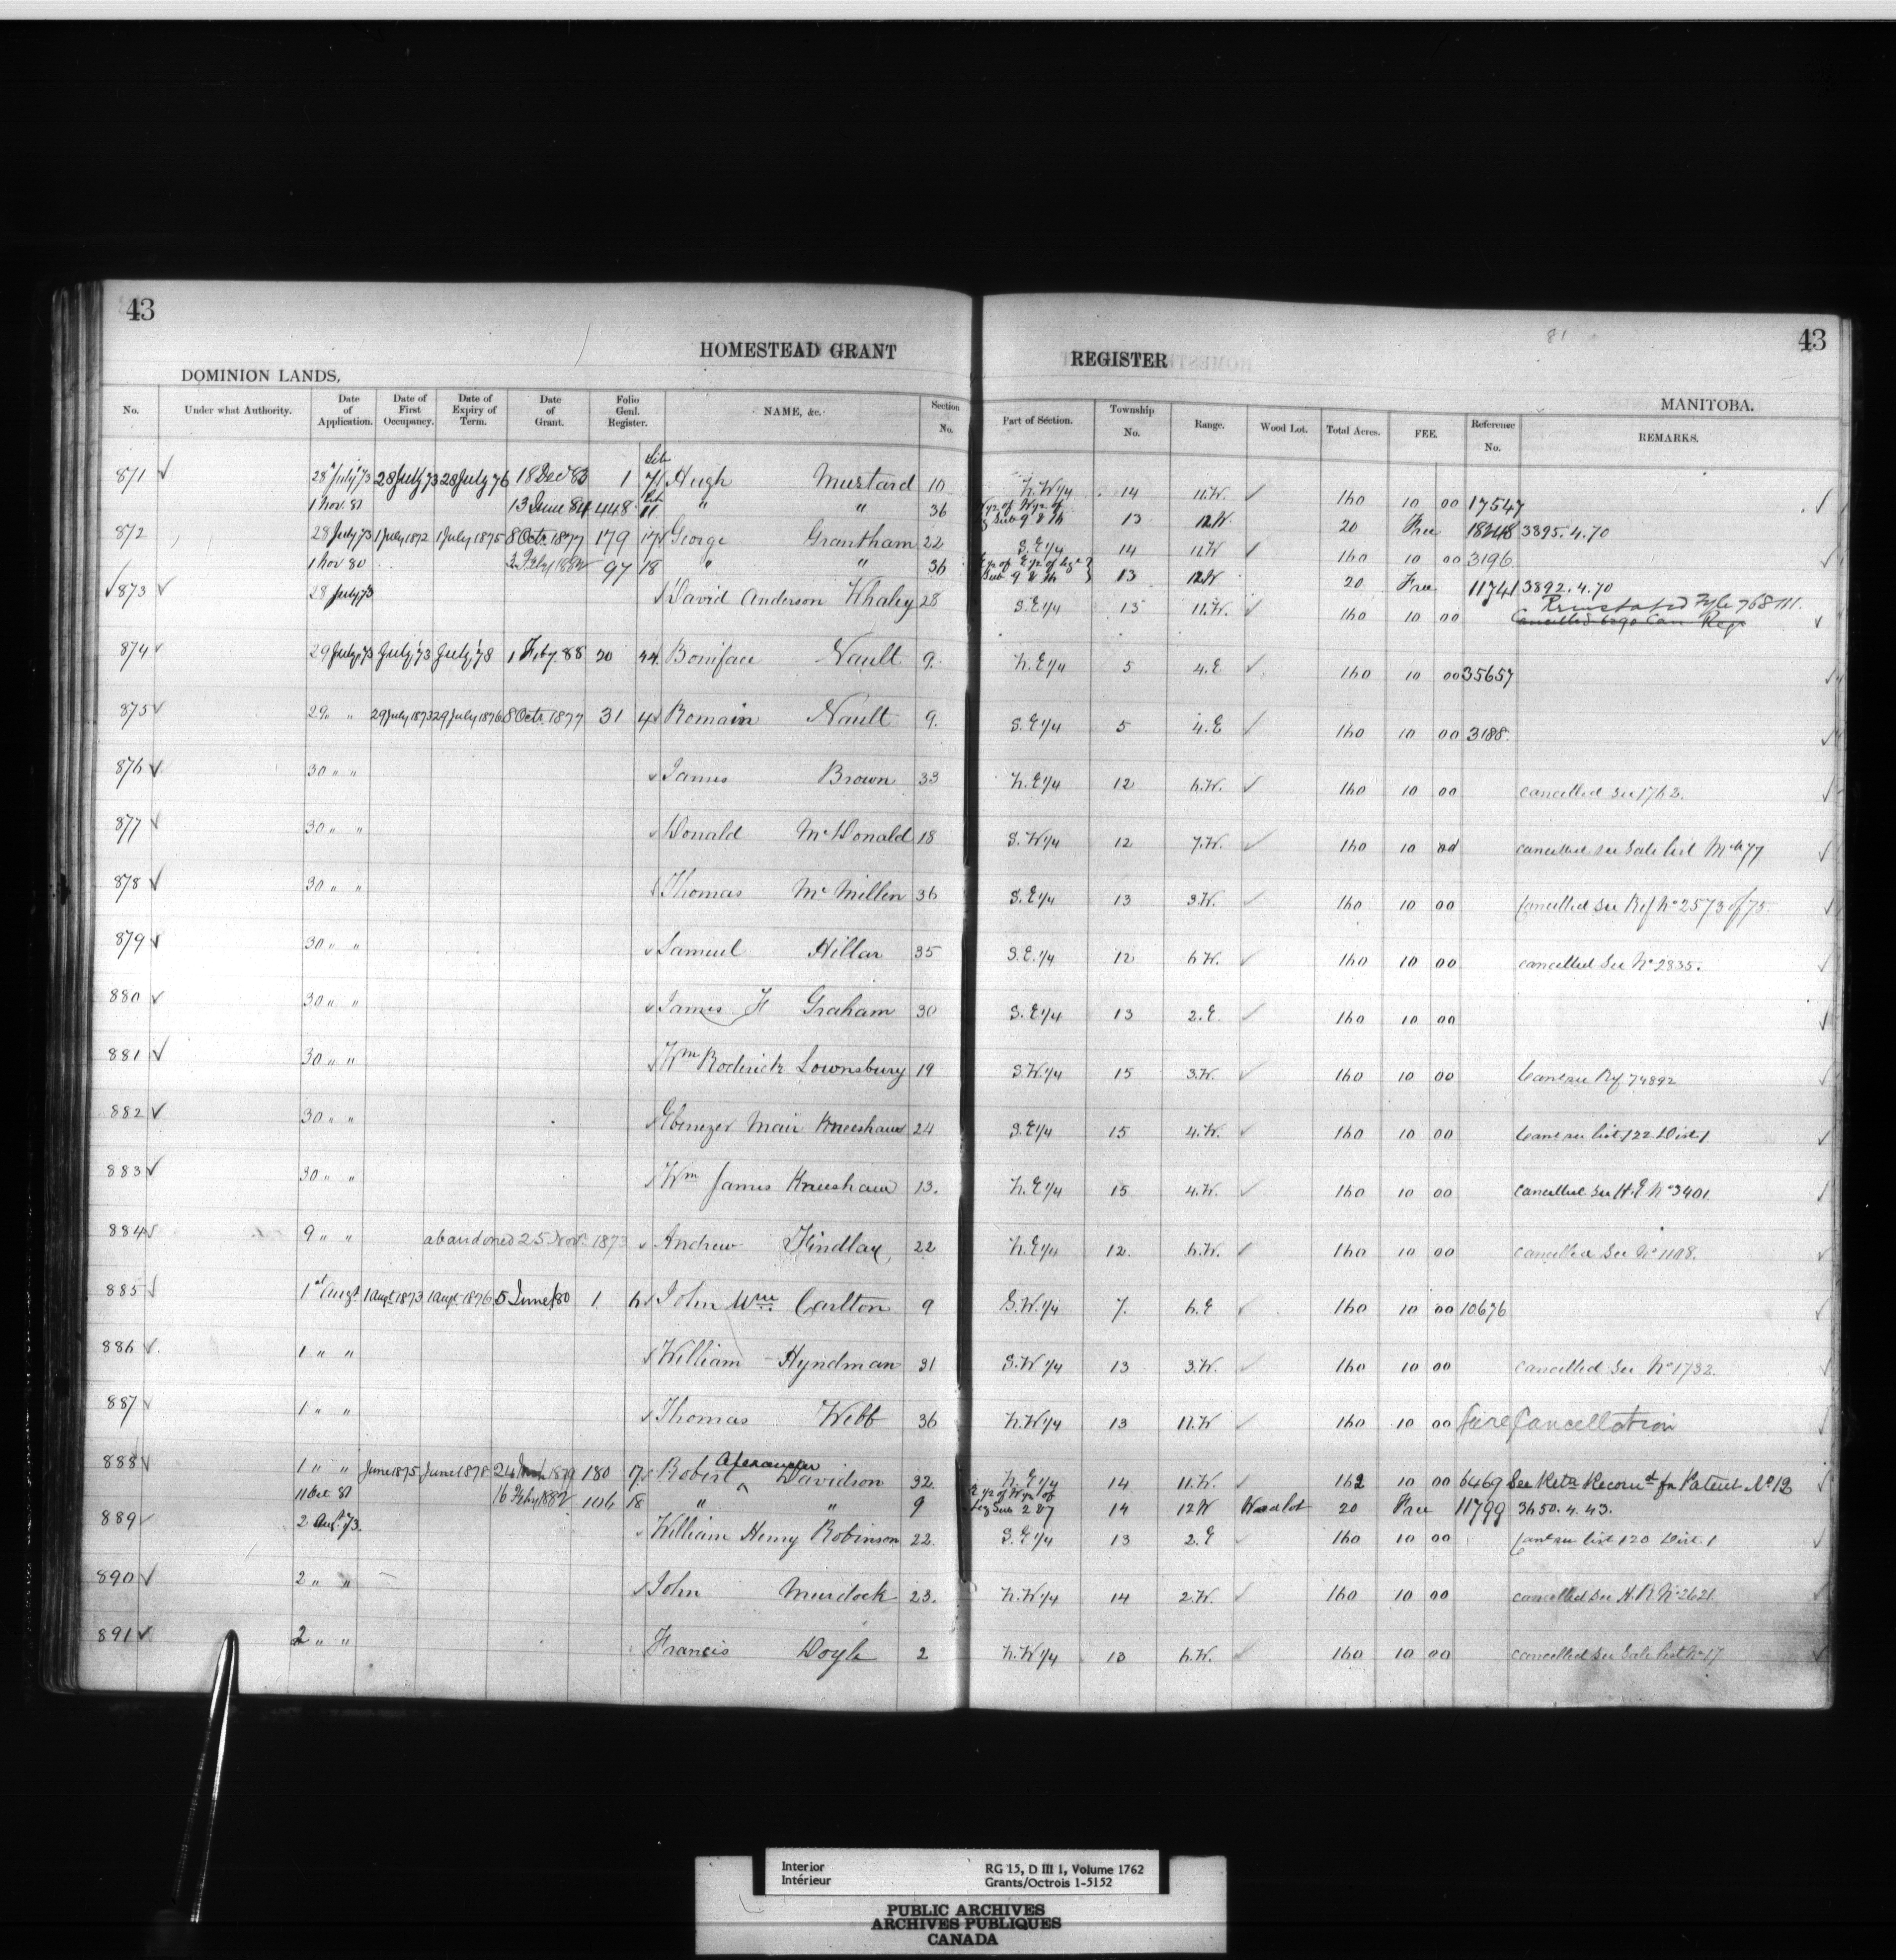 43
43
81
HOMESTEAD GRANT REGISTER
DOMINION LANDS,
MANITOBA.
No. Under what Authority. Date of Application. Date of First Occupancy. Date of Expiry of Term. Date of Grant. Folio Genl. Register. NAME, &c. Section No. Part of Section. Township No. Range. Wood Lot. Total Acres. FEE. Reference No. REMARKS.
871 28 July '73 28 July 73 28 July 76 18 Dec 83 1 Hugh Mustard 10 N.W 1/4 14 11.W. 160 10 00 17547
1 Nov. 81 13 June 84 448 11 " " 36 13 12W. 20 Free 3895.4.70
872 28 July 73 1 July 1872 1 July 1875 8 Octr. 1877 179 17 George Grantham 22 S.E 1/4 14 11.W 160 10 00 3196
1 Nov 80 1882 97 18 " " 36 13 12W. 20 Free 11741 3892.4.70
873 28 July 73 David Anderson Whaley 28 S.E 1/4 15 11.W. 160 10 00 Reinstated Fyle 76811.
Cancelled Can Regr
874 29 July 73 July '73 July '78 1 Feby. 88 20 44 Boniface Nault 9. N.E 1/4 5 4.E 160 10 00 35657
875 29 " 29 July 1873 29 July 1876 8 Octr. 1877 31 4 Romain Nault 9. S.E 1/4 5 4.E 160 10 00 3188.
876 30 " " James Brown 33 N.E 1/4 12 6.W. 160 10 00 cancelled See 1762.
877 30 " " Donald McDonald 18 S.W 1/4 12 7.W. 160 10 00 cancelled see Sale list Mch 77
878 30 " " Thomas McMillen 36 S.E 1/4 13 3.W. 160 10 00 Cancelled See Ref No 2573 of 75.
879 30 " " Samuel Hillar 35 S.E. 1/4 12 6W. 160 10 00 cancelled See No 2835.
880 30 " " James F Graham 30 S.E 1/4 13 2.E. 160 10 00
881 30 " " Wm Roderick Lownsbury 19 S.W 1/4 15 3.W. 160 10 00 Canc see Ref 74892
882 30 " " Ebenezer Mair Kneeshaw 24 S.E 1/4 15 4.W. 160 10 00 Canc see list 122 Dist. 1
883 30 " " Wm James Kneeshaw 13. N.E 1/4 15 4.W. 160 10 00 Cancelled See H.E No 3401
884 9 " " abandoned 25 Novr. 1873 Andrew Findlay 22 N.E 1/4 12 6.W. 160 10 00 cancelled See No 1108.
885 1st Augt 1 Augt 1873 1 Augt 1876 5 June/80 1 6 John Wm. Carlton 9 S.W. 1/4 7. 6.E 160 10 00 10676
886 1 " " William Hyndman 31 S.W 1/4 13 3.W. 160 10 00 cancelled See No 1732.
887 1 " " Thomas Webb 36 N.W 1/4 13 11.W 160 10 00 Cancellation
888 1 " " June 1875 June 1878 24 1879 180 17 Robert Alexander Davidson 32. N.E 1/4 14 11.W. 162 10 00 6469 See Retn Recomd for Patent No 12
11 Oct 81 16 Feby 1882 106 18 " " 9 E 1/2 of W 1/2 of Leg Sub 2 & 7 14 12W Woodlot 20 Free 11799 3650.4.43.
889 2 Augt. 73. William Henry Robinson 22. S.E 1/4 13 2.E 160 10 00 Canc see list 120 Dist. 1
890 2 " " John Murdock 23. N.W 1/4 14 2.W. 160 10 00 cancelled See H.R. No 2621
891 2 " " Francis Doyle 2 N.W 1/4 13 6.W. 160 10 00 cancelled See Sale list No 17
Interior
Intérieur
RG 15, D III 1, Volume 1762
Grants/Octrois 1-5152
PUBLIC ARCHIVES
ARCHIVES PUBLIQUES
CANADA